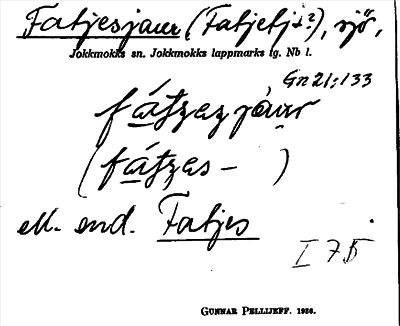 Fatjesjaur (Fatjetj..?), sjö,
Jokkmokks sn. Jokkmokks lappmarks tg. Nb l.
Gn 21:133
fátʒezjáur
(fátʒes- )
ell. end. Fatjes
I 75
GUNNAR PELLIJEFF. 1956.